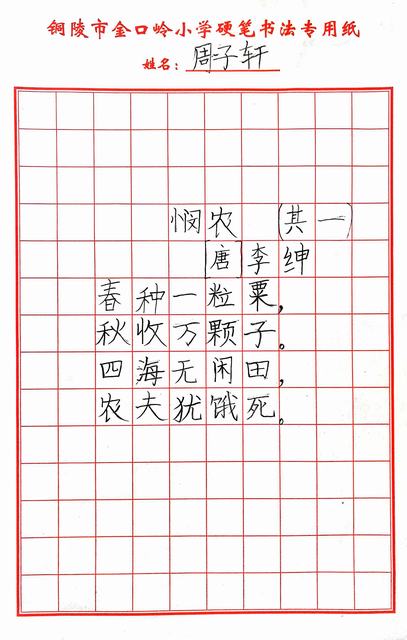 铜陵市金口岭小学硬笔书法专用纸
姓名：周子轩
悯农（其一）
[唐]李绅
春种一粒粟，
秋收万颗子。
四海无闲田，
农夫犹饿死。